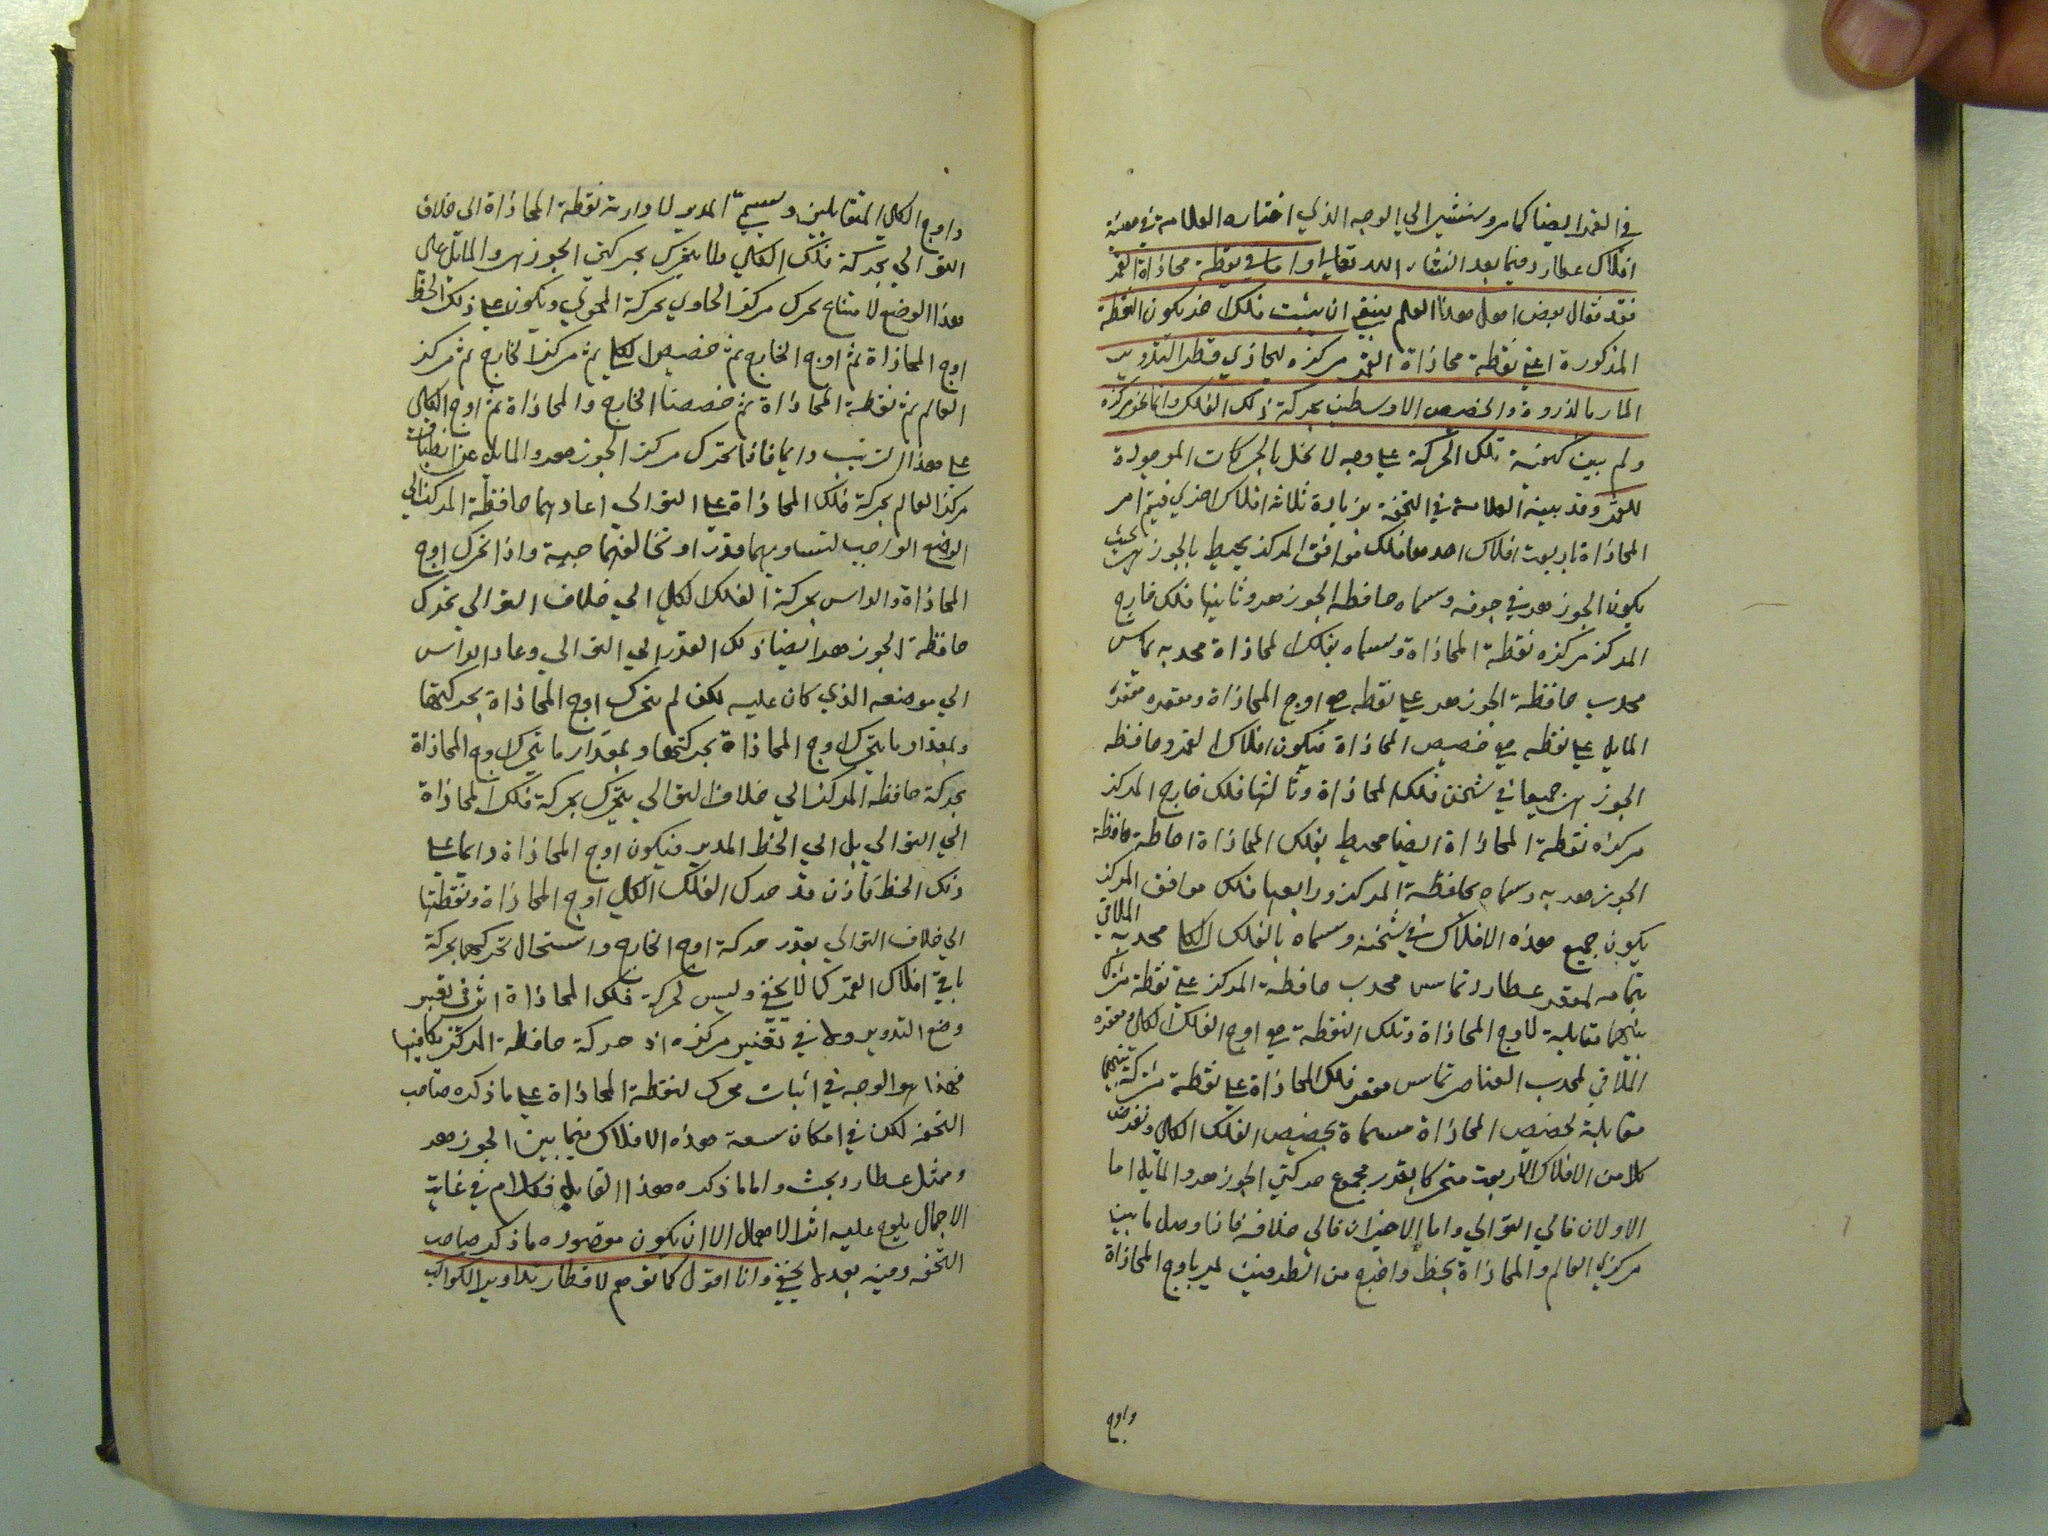 في القمر ايضا كما مر وسنشير الي الوجه الذي اختاره العلامة في هيئة
افلاك عطارد فيما بعد انشاء الله تعالي واما في نقطة محاذاة القمر
فقد قال بعض اهل هذا العلم ينبغي ان يثبت فلك اخر يكون النقطة
المذكورة اعني نقطة محاذاة القمر مركزه ليحاذي قطر التدوير
المار بالذروة والحضيض الاوسطين بحركة ذلك الفلك دائما نحو مركزه
ولم يبين كيفية تلك الحركة علي وجه لا يخل بالحركات الموجودة
للقمر وقد بينه العلامة في التحفة بزيادة ثلاثة افلاك اخري فيتم امر
المحاذاة باربعة افلاك احدها فلك موافق المركز يحيط بالجوزهر بحيث
يكون الجوزهر في جوفه وسماه حافظة الجوزهر وثانيها فلك خارج
المركز مركزه نقطة المحاذاة وسماه بفلك المحاذاة محدبه يماس
محدب حافظة الجوزهر علي نقطة هي اوج المحاذاة ومقعره مقعر
المايل علي نقطة هي حضيض المحاذاة فيكون افلاك القمر وحافظة
الجوزهر جميعا في ثخن فلك المحاذاة وثالثها فلك خارج المركز
مركزه نقطة المحاذاة ايضا محيط بفلك المحاذاة احاطة حافظة
الجوزهر به وسماه بحافظة المركز ورابعها فلك موافق المركز
يكون جميع هذه الافلاك في ثخنه وسماه بالفلك الكلي محدبه الملاقي
بتمامه لمقعر عطارد تماس محدب حافظة المركز علي نقطة مشتركة
بينهما مقابلة لاوج المحاذاة وتلك النقطة هي اوج الفلك الكلي ومقعره
الملاقي لمحدب العناصر تماس مقعر فلك المحاذاة علي نقطة مشتركة بينهما
مقابلة لحضيض المحاذاة مسماة بحضيض الفلك الكلي ونفرض
كلا من الافلاك الاربعة متحركا بقدر مجموع حركتي الجوزهر والمايل اما
الاولان فالي التوالي واما الاخيران فالي خلافه فاذا وصل ما بين
مركزي العالم والمحاذاة بخط واخرج من الطرفين لمر باوج المحاذاة
واوج
واوج الكلي المتقابلين ويسمي المدير لادارته نقطة المحاذاة الي خلاف
التوالي بحركة فلك الكلي ولا يتحرك بحركتي الجوزهر والمايل علي
هذا الوضع لامتناع تحرك مركز الحاوي بحركة المحوي ويكون علي ذلك الخط
اوج المحاذاة ثم اوج الخارج ثم حضيض الكلي ثم مركز الخارج ثم مركز
العالم ثم نقطة المحاذاة ثم حضيضا الخارج والمحاذاة ثم اوج الكلي
علي هذا الترتيب دايما فاذا تحرك مركز الجوزهر والمايل عن انطباق
مركز العالم بحركة فلك المحاذاة علي التوالي اعادهما حافظة المركز الي
الوضع الواجب لتساويهما قدرا وتخالفهما جهة واذا تحرك اوج
المحاذاة والراس بحركة الفلك الكلي الي خلاف التوالي تحرك
حافظة الجوزهر ايضا ذلك القدر الي التوالي وعاد الراس
الي موضعه الذي كان عليه لكن لم يتحرك اوج المحاذاة بحركتها
وبمقدار ما يتحرك اوج المحاذاة بحركتها وبمقدار ما يتحرك اوج المحاذاة
بحركة حافظة المركز الي خلاف التوالي يتحرك بحركة فلك المحاذاة
الي التوالي بل الي الخط المدير فيكون اوج المحاذاة دايما علي
ذلك الخط فاذن قد حرك الفلك الكلي اوج المحاذاة ونقطتها
الي خلاف التوالي بقدر حركة اوج الخارج واستحال تحركهما بحركة
باقي افلاك القمر كما لا يخفي وليس لحركة فلك المحاذاة اثر في تغيير
وضع التدوير ولا في تغيير مركزه اذ حركة حافظة المركز يكافيها
فهذا هو الوجه في اثبات محرك لنقطة المحاذاة علي ما ذكره صاحب
التحفة لكن في امكان سعة هذه الافلاك فيما بين الجوزهر
وممثل عطارد بحث واما ما ذكره هذا القايل فكلام في غاية
الاجمال يلوح عليه اثر الاهمال الا ان يكون مقصوده ما ذكر صاحب
التحفة وفيه بعد لا يخفي وانا اقول كما توهم لاقطار تداوير الكواكب